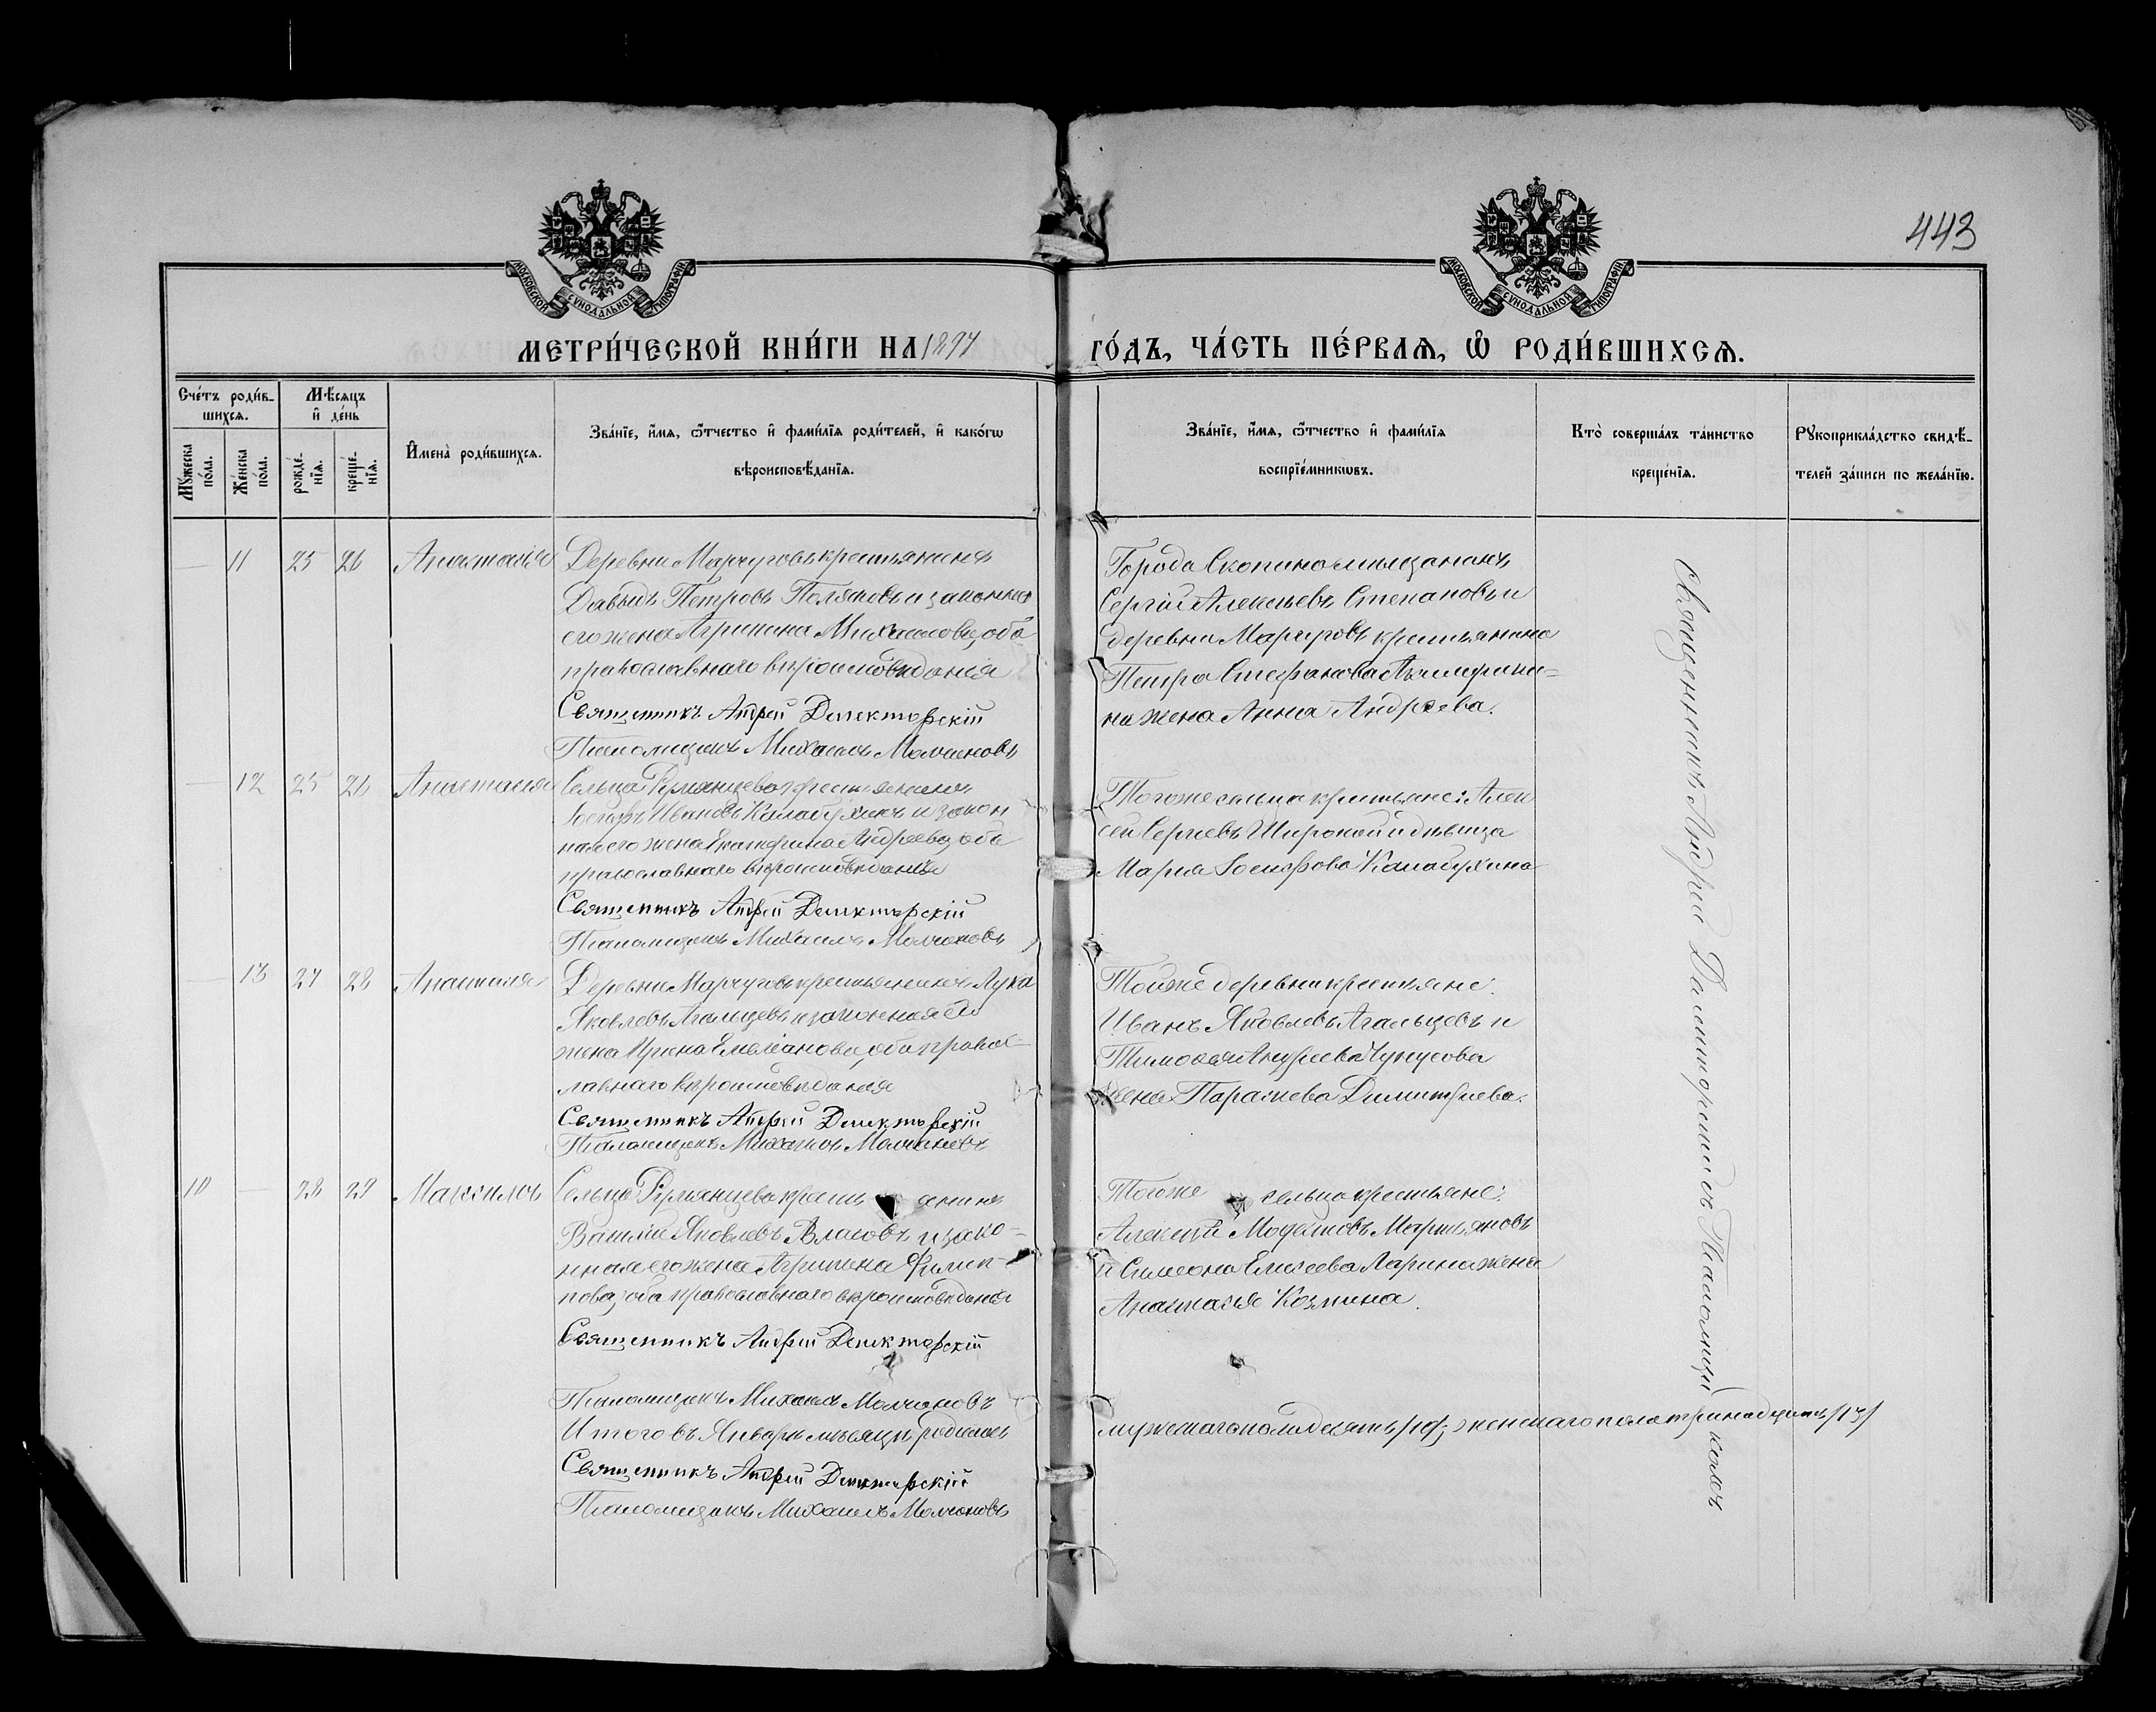 443
МОСКОВСКОЙ СѴНОДАЛЬНОЙ ТИПОГРАФІИ
МОСКОВСКОЙ СѴНОДАЛЬНОЙ ТИПОГРАФІИ
МЕТРИ́ЧЕСКОЙ КНИ́ГИ НА 1897 ГО́ДЪ, ЧА́СТЬ ПЕ́РВАѦ, Ѡ РОДИ́ВШИХСѦ.
Сче́тъ роди́в-
шихсѧ.
Мꙋ́жеска по́ла.
Же́нска по́ла.
Мѣ́сѧцъ
и҆ де́нь
рожде́-нїѧ.
креще́-нїѧ.
И҆мена̀ роди́вшихсѧ.
Зва́нїе, и҆́мѧ, ѻ҆́тчество и҆ фами́лїѧ роди́телей, и҆ како́гѡ
вѣроисповѣ́данїѧ.
Зва́нїе, и҆́мѧ, ѻ҆́тчество и҆ фами́лїѧ
воспрїе́мникѡвъ.
Кто̀ соверша́лъ та́инство
креще́нїѧ.
Рꙋкоприкла́дство свидѣ́-
телей за́писи по жела́нїю.
— 11 25 26 Анастасія
Деревни Марчуговъ крестьянинъ
Давыдъ Петровъ Поляковъ и законная
его жена Агрипина Михаилова, оба
православнаго вѣроисповѣданія
Священникъ Андрей
Псаломщикъ Михаилъ Молчановъ
Города Скопина мѣщанинъ
Сергій Алексѣевъ Степановъ и
деревни Марчуговъ крестьянина
Петра Стефанова
на жена Анна Андреева.
— 12 25 26 Анастасія
Сельца Румянцева крестьянинъ
Іосифъ Ивановъ Калабухинъ и закон
ная его жена Екатерина Андреева, оба
православнаго вѣроисповѣданія
Священникъ Андрей
Псаломщикъ Михаилъ Молчановъ
Тогоже сельца крестьяне: Алек
сѣй Сергѣевъ Широкой и дѣвица
Марія Іосифова Калабухина
— 13 27 28 Анастасія
Деревни Марчуговъ крестьянинъ Лука
Яковлевъ Агальцевъ и законная его
жена Ирина Емеліанова, оба правос-
лавнаго вѣроисповѣданія
Священникъ Андрей
Псаломщикъ Михаилъ Молчановъ
Тойже деревни крестьяне:
Иванъ Яковлевъ Агальцевъ и
Тимофея Андреева
жена Параскева Димитріева.
10 — 28 29 Максимъ
Сельца Румянцева крестьянинъ
Василій Яковлевъ Власовъ и зако-
нная его жена Агрипина Филип-
пова, оба православнаго вѣроисповѣданія
Священникъ Андрей
Псаломщикъ Михаилъ Молчановъ
Тогоже сельца крестьяне:
Алексѣй Модестовъ Мартьяновъ
и Симеона Елисеева Ларина жена
Анастасія Козмина.
Итого въ Январѣ мѣсяцѣ родилось мужескаго пола десять /10/; женскаго пола тринадцать /13/
Священникъ Андрей
Псаломщикъ Михаилъ Молчановъ
Священникъ Андрей